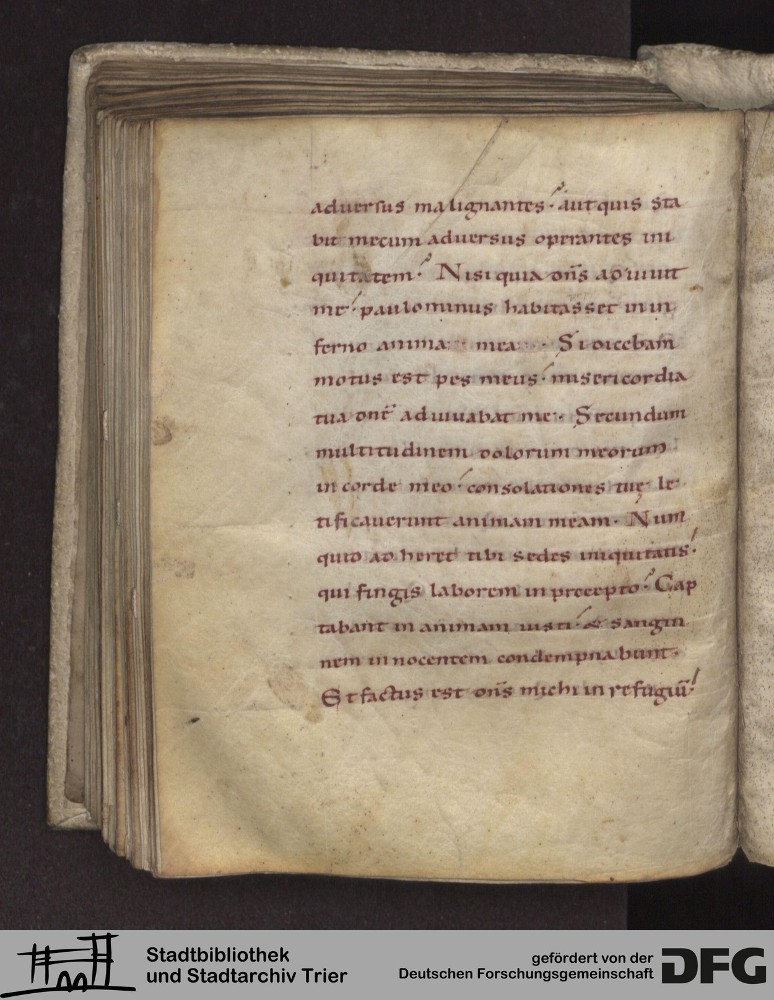 adversus malignantes. aut quis sta
bit mecum adversus operantes ini
quitatem. Nisi quia dñs adiuuit
me. paulominus habitasset in in
ferno anima mea. Si dicebam
motus est pes meus. misericordia
tua dnẽ adiuuabat me. Secundum
multitudinem dolorum meorum
in corde meo. consolationes tuę le
tificauerunt animam meam. Num
quid adheret tibi sedes iniquitatis.
qui fingis laborem in precepto. Cap
tabant in animam iusti. & sangui
nem innocentem condempnabunt.
Et factus est dñs michi in refugiũ.
Stadtbibliothek
und Stadtarchiv Trier
gefördert von der
Deutschen Forschungsgemeinschaft
DFG